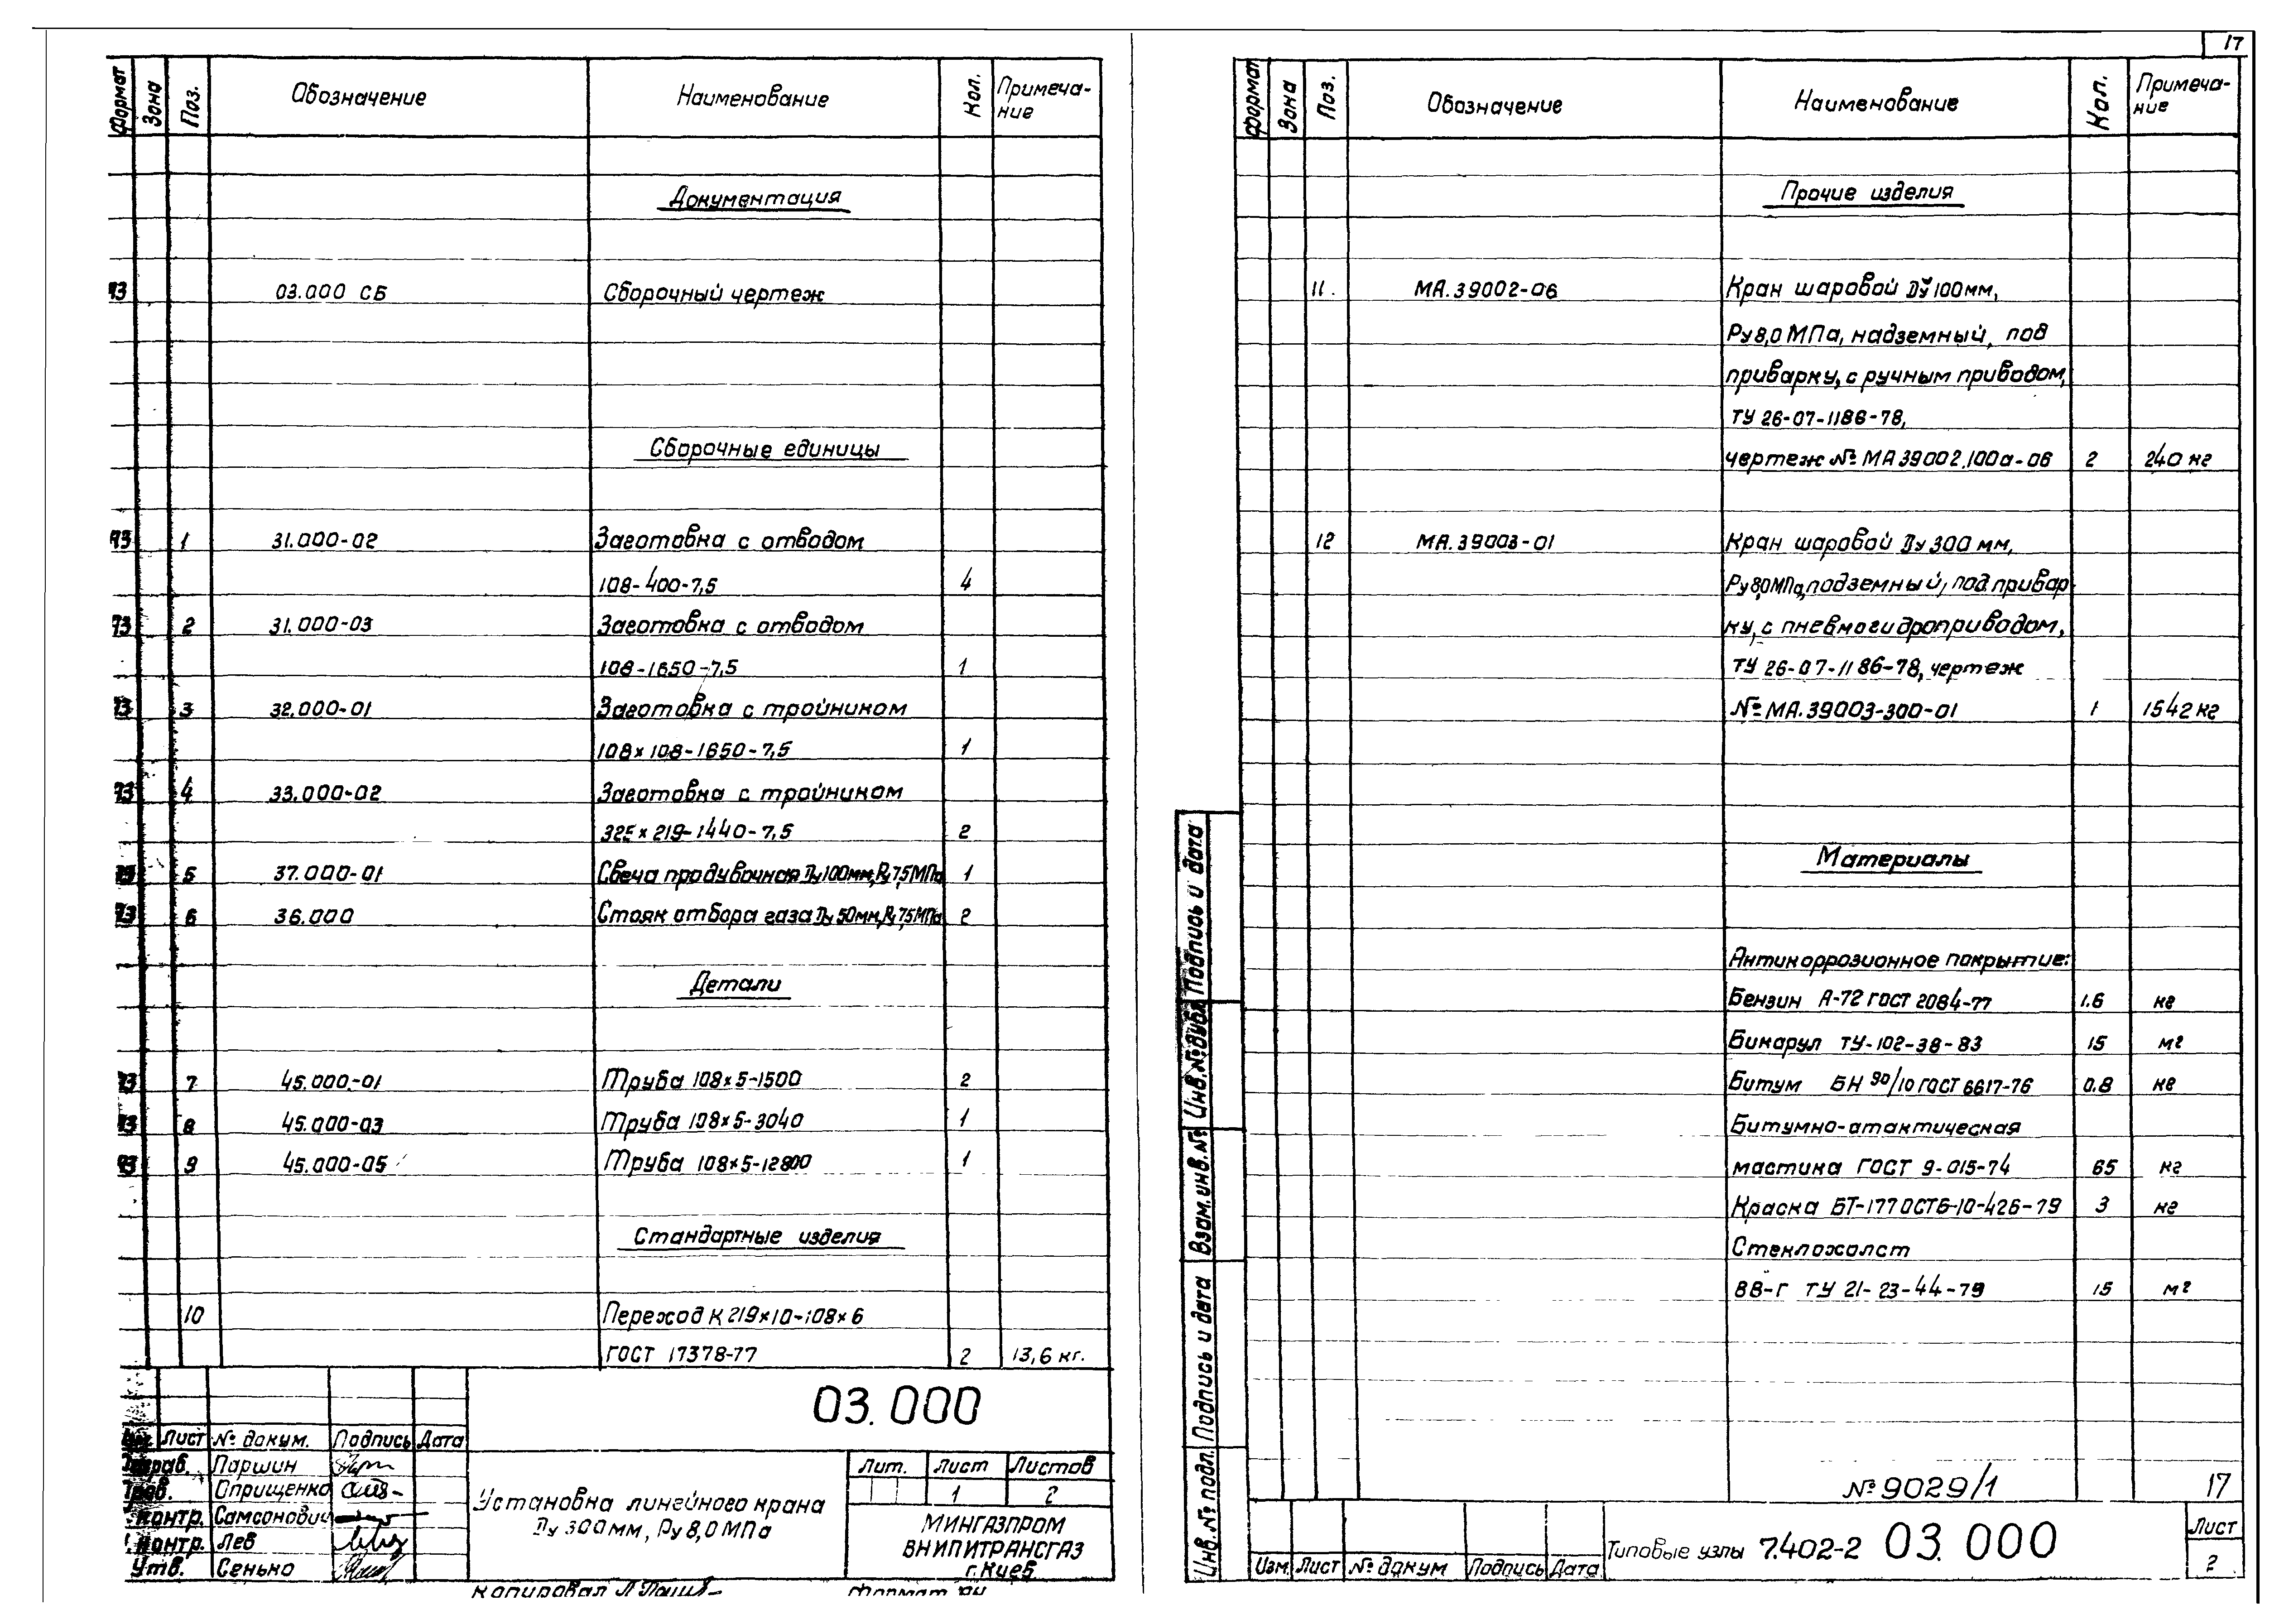 17
Формат Зона Поз. Обозначение Наименование Кол. Примеча-
ние
Документация
А3 03.000 СБ Сборочный чертеж
Сборочные единицы
А3 1 31.000-02 Заготовка с отводом
108-400-7,5 4
А3 2 31.000-03 Заготовка с отводом
108-1650-7,5 1
А3 3 32.000-01 Заготовка с тройником
108×108-1650-7,5 1
А3 4 33.000-02 Заготовка с тройником
325×219-1440-7,5 2
А3 5 37.000-01 Свеча продувочная Ду100мм,Ру7,5МПа 1
А3 6 36.000 Стояк отбора газа Ду50мм,Ру7,5МПа 2
Детали
А3 7 45.000-01 Труба 108×5-1500 2
А3 8 45.000-03 Труба 108×5-3040 1
А3 9 45.000-05 Труба 108×5-12800 1
Стандартные изделия
10 Переход К 219×10-108×6
ГОСТ 17378-77 2 13,6 кг.
03.000
Изм. Лист № докум. Подпись Дата
Разраб. Паршин
Пров. Оприщенко
Н.контр. Самсонович
Н.контр. Лев
Утв. Сенько
Установка линейного крана
Ду 300мм, Ру 8,0 МПа
Лит. Лист Листов
1 2
МИНГАЗПРОМ
ВНИПИТРАНСГАЗ
г.Киев
Копировал Формат А4
Формат Зона Поз. Обозначение Наименование Кол. Примеча-
ние
Прочие изделия
11. МА.39002-06 Кран шаровой Ду 100мм,
Ру8,0 МПа, надземный, под
приварку, с ручным приводом,
ТУ 26-07-1186-78,
чертеж № МА 39002.100а-06 2 240 кг
12 МА.39003-01 Кран шаровой Ду 300 мм,
Ру8,0МПа, подземный, под привар
ку, с пневмогидроприводом,
ТУ 26-07-1186-78, чертеж
№ МА.39003-300-01 1 1542 кг
Материалы
Антикоррозионное покрытие:
Бензин А-72 ГОСТ 2084-77 1.6 кг
Бикарул ТУ-102-38-83 15 м2
Битум БН 90/10 ГОСТ 6617-76 0.8 кг
Битумно-атактическая
мастика ГОСТ 9-015-74 65 кг
Краска БТ-177 ОСТ6-10-426-79 3 кг
Стеклохолст
ВВ-Г ТУ 21-23-44-79 15 м2
Подпись и дата
Инв.№ дубл.
Взам.инв.№
Подпись и дата
Инв.№ подл.
№ 9029/1 17
Изм. Лист № докум Подпись Дата
Типовые узлы 7.402-2 03.000
Лист
2